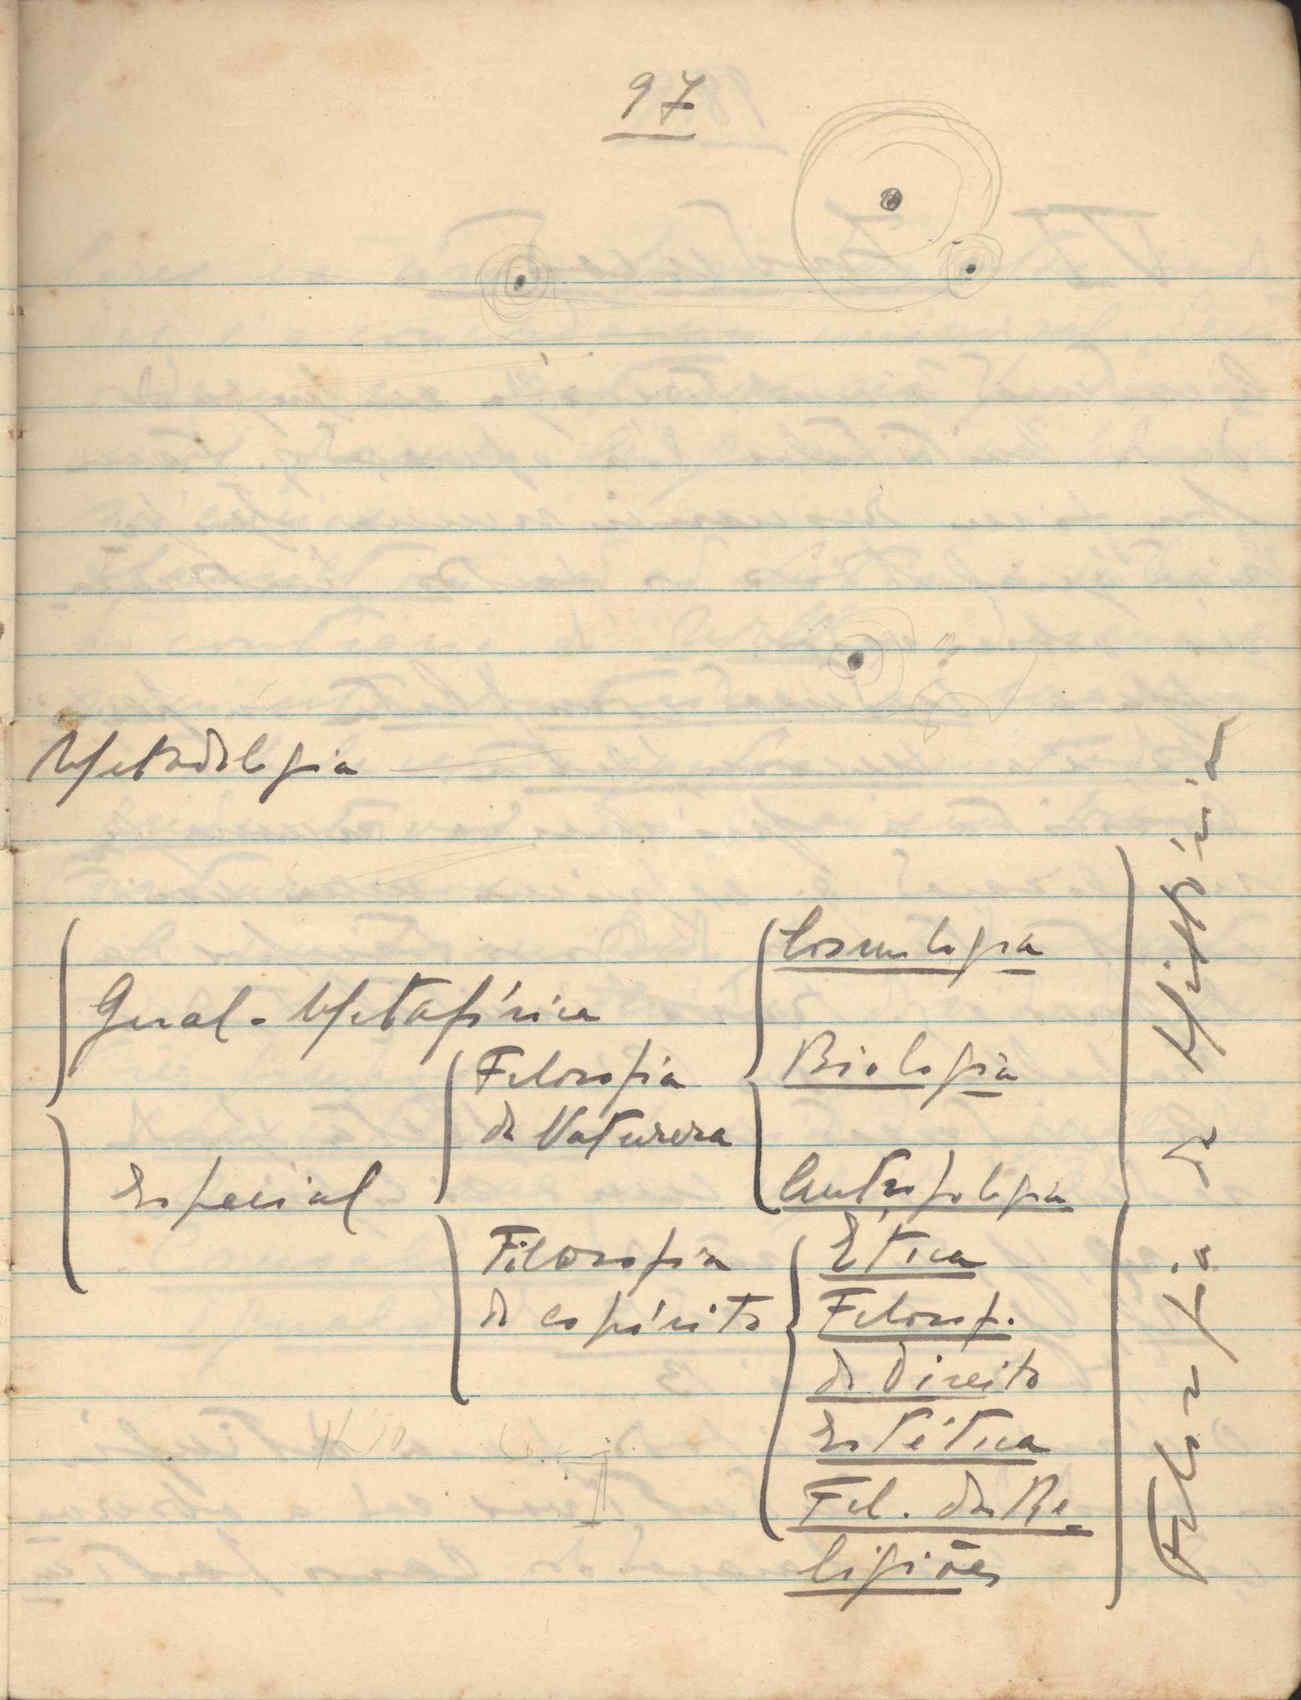 97
Metodologia
Geral - Metafísica
Especial
Filosofia
da Natureza
Cosmologia
Biologia
Antropologia
Filosofia
do espírito
Ética
Filosof.
do Direito
Estética
Fil. das Re-
ligiões
Filosofia da História